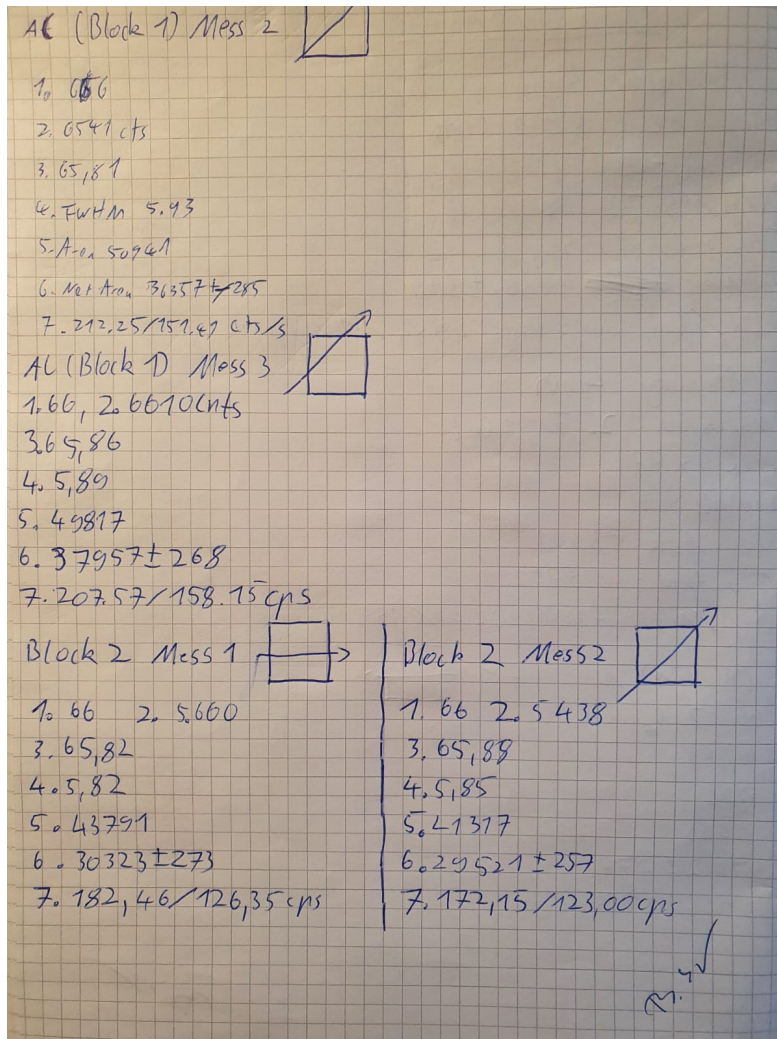 AC (Block 1) Mess 2
1. 66
2. 6541 cts
3. 65,81
4. FWHM 5.93
5. Area 50941
6. Net Area 36357 ± 285
7. 212.25/151.49 cts/s
AL (Block 1) Mess 3
1. 66, 2. 6610 Cnts
3. 65,86
4. 5,89
5. 49817
6. 37957 ± 268
7. 207.57/158.15 cps
Block 2 Mess 1
1. 66 2. 5.660
3. 65,82
4. 5,82
5. 43791
6. 30323 ± 273
7. 182,46/126,35 cps
Block 2 Mess 2
1. 66 2. 5438
3. 65,88
4. 5,85
5. 41317
6. 29521 ± 257
7. 172,15/123,00 cps